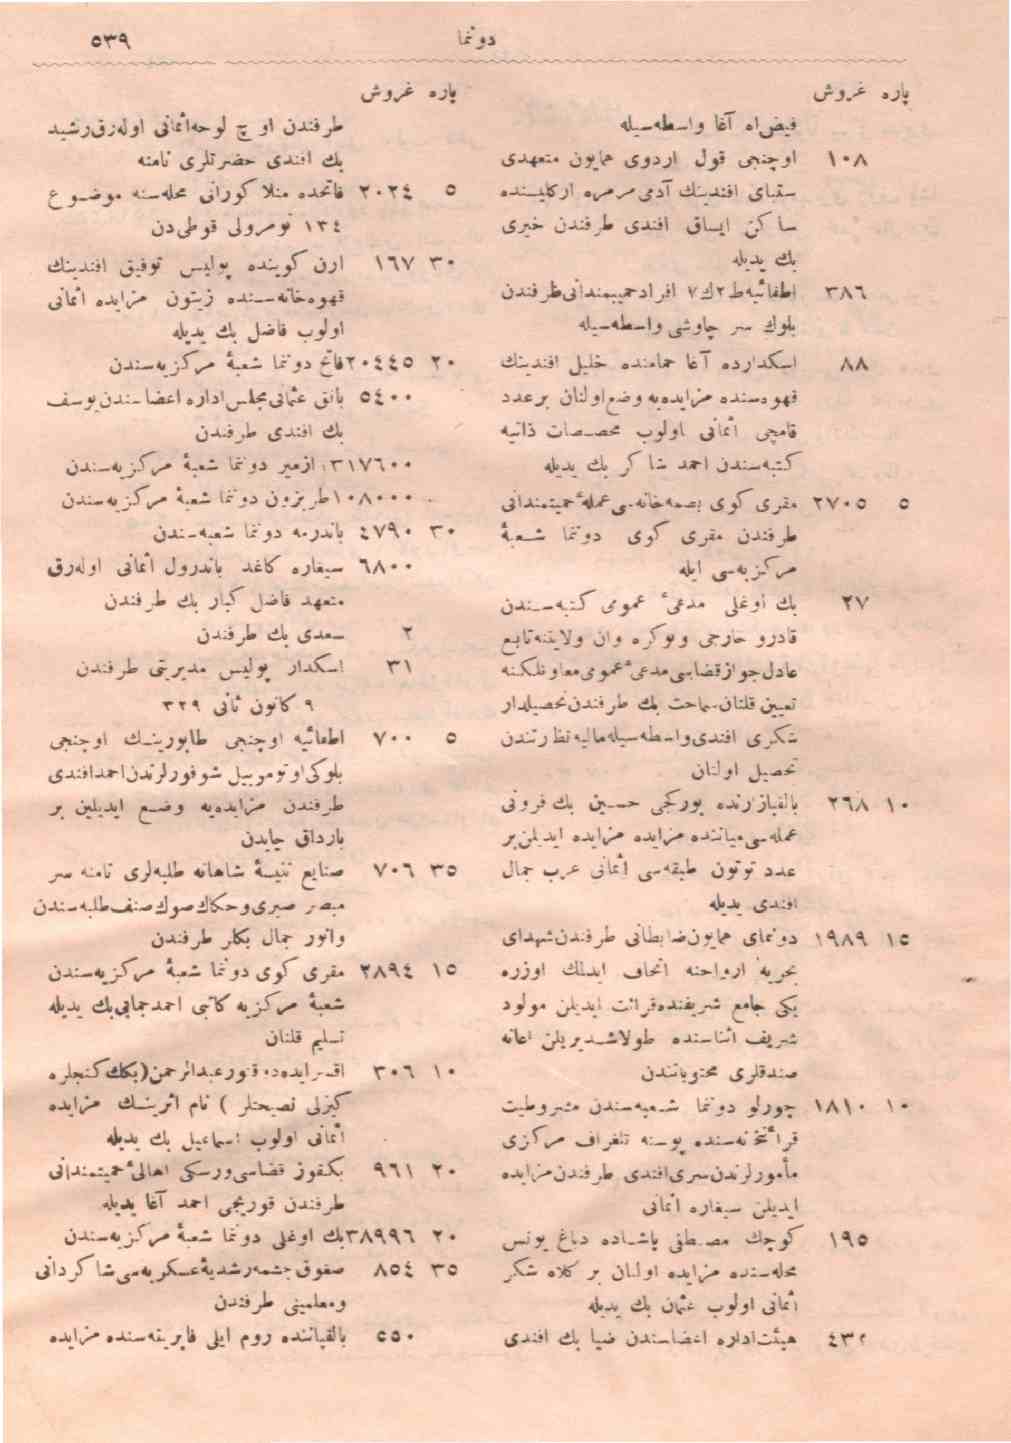 ٥٣٩
دوننما
پاره غروش
فيض‌اه آغا واسطه‌سيله
١٠٨ اوچنجی قول اردوی همايون متعهدی
سقبای افندينك آدمی مرمره اركليسنده
ساكن ايساق افندی طرفندن خيری
بك يديله
٣٨٦ اطفائيه ط ٢ ك ٧ افراد حميتمندانی طرفندن
بلوك سر چاوشی واسطه‌سيله
٨٨ اسكدارده آغا حمامنده خليل افندينك
قهوه‌سنده مزايده‌يه وضع اولنان بر عدد
قامچی اثمانی اولوب مخصصات ذاتيه
كتبه‌سندن احمد شاكر بك يديله
٥ ٢٧٠٥ مقری كوی بصمه‌خانه‌سی عملهٔ حميتمندانی
طرفندن مقری كوی دوننما شعبهٔ
مركزيه‌سی ايله
٢٧ بك اوغلی مدعیٔ عمومی كتبه‌سندن
قادرو خارجی ونوكره وان ولايتنه تابع
عادل جواز قضاسی مدعیٔ عمومی معاونلكنه
تعيين قلنان سماحت بك طرفندن تحصيلدار
شكری افندی واسطه‌سيله ماليه نظارتندن
تحصيل اولنان
١٠ ٢٦٨ بالقپازارنده يوركجی حسين بك فرونی
عمله‌سی مياننده مزايده مزايده ايديلن بر
عدد توتون طبقه‌سی اثمانی عرب جمال
افندی يديله
١٥ ١٩٨٩ دوننمای همايون ضابطانی طرفندن شهدای
بحريه ارواحنه اتحاف ايدلك اوزره
يكی جامع شريفنده قرائت ايديلن مولود
شريف اثناسنده طولاشديريلن اعانه
صندقلری محتوياتندن
١٠ ١٨١٠ چورلو دوننما شعبه‌سندن مشروطيت
قرائتخانه‌سنده پوسته تلغراف مركزی
مأمورلرندن سری افندی طرفندن مزايده
ايديلن سيغاره اثمانی
١٩٥ كوچك مصطفی پاشاده دباغ يونس
محله‌سنده مزايده اولنان بر كلاه شكر
اثمانی اولوب عثمان بك يديله
٤٣٢ هيئت اداره اعضاسندن ضيا بك افندی
پاره غروش
طرفندن اوچ لوحه اثمانی اوله‌رق رشيد
بك افندی حضرتلری نامنه
٥ ٢٠٢٤ فاتحده منلا كورانی محله‌سنه موضوع
١٣٤ نومرولی قوطی‌دن
٣٠ ١٦٧ ارن كوينده پوليس توفيق افندينك
قهوه‌خانه‌سنده زيتون مزايده اثمانی
اولوب فاضل بك يديله
٢٠ ٢٠٤٤٥ فاتح دوننما شعبهٔ مركزيه‌سندن
٥٤٠٠ بانق عثمانی مجلس اداره اعضاسندن يوسف
بك افندی طرفندن
٣١٧٦٠٠ ازمير دوننما شعبهٔ مركزيه‌سندن
١٠٨٠٠٠ طربزون دوننما شعبهٔ مركزيه‌سندن
٣٠ ٤٧٩٠ باندرمه دوننما شعبه‌سندن
٦٨٠٠ سيغاره كاغد باندرول اثمانی اوله‌رق
متعهد فاضل كبار بك طرفندن
٢ سعدی بك طرفندن
٣١ اسكدار پوليس مديريتی طرفندن
٩ كانون ثانی ٣٢٩
٥ ٧٠٠ اطفائيه اوچنجی طابورينك اوچنجی
بلوكی اوتوموبيل شوفورلرندن احمد افندی
طرفندن مزايده‌يه وضع ايديلين بر
بارداق چايدن
٣٥ ٧٠٦ صنايع نفيسهٔ شاهانه طلبه‌لری نامنه سر
مبصر صبری وحكاك صوك صنف طلبه‌سندن
وانور جمال بكلر طرفندن
١٥ ٢٨٩٤ مقری كوی دوننما شعبهٔ مركزيه‌سندن
شعبهٔ مركزيه كاتبی احمد جمابی بك يديله
تسليم قلنان
١٠ ٣٠٦ اقسرايده دوقتور عبدالرحمن (بكك كنجلره
كيزلی نصيحتلر) نام اثرينك مزايده
اثمانی اولوب اسماعيل بك يديله
٢٠ ٩٦١ بكفوز قضاسی ورسكی اهالیٔ حميتمندانی
طرفندن قوريجی احمد آغا يديله
٢٠ ٣٨٩٩٦ بك اوغلی دوننما شعبهٔ مركزيه‌سندن
٣٥ ٨٥٤ صغوق چشمه رشديهٔ عسكريه‌سی شاكردانی
ومعلمينی طرفندن
٥٥٠ بالقپاننده روم ايلی فابريقه‌سنده مزايده